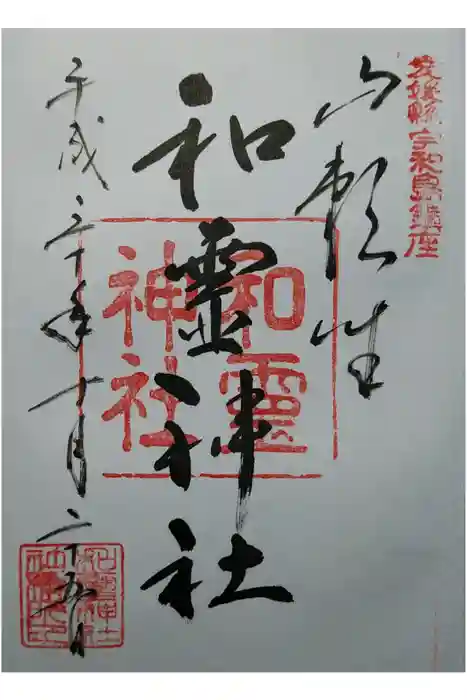 愛媛縣宇和島鎮座
山頼
和靈神社
和靈
神社
平成三十年十月二十五日